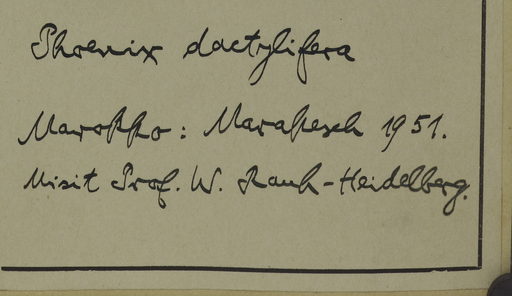 Phoenix dactylifera
Marokko: Marakesch 1951.
Misit Prof. W. Rauh-Heidelberg.